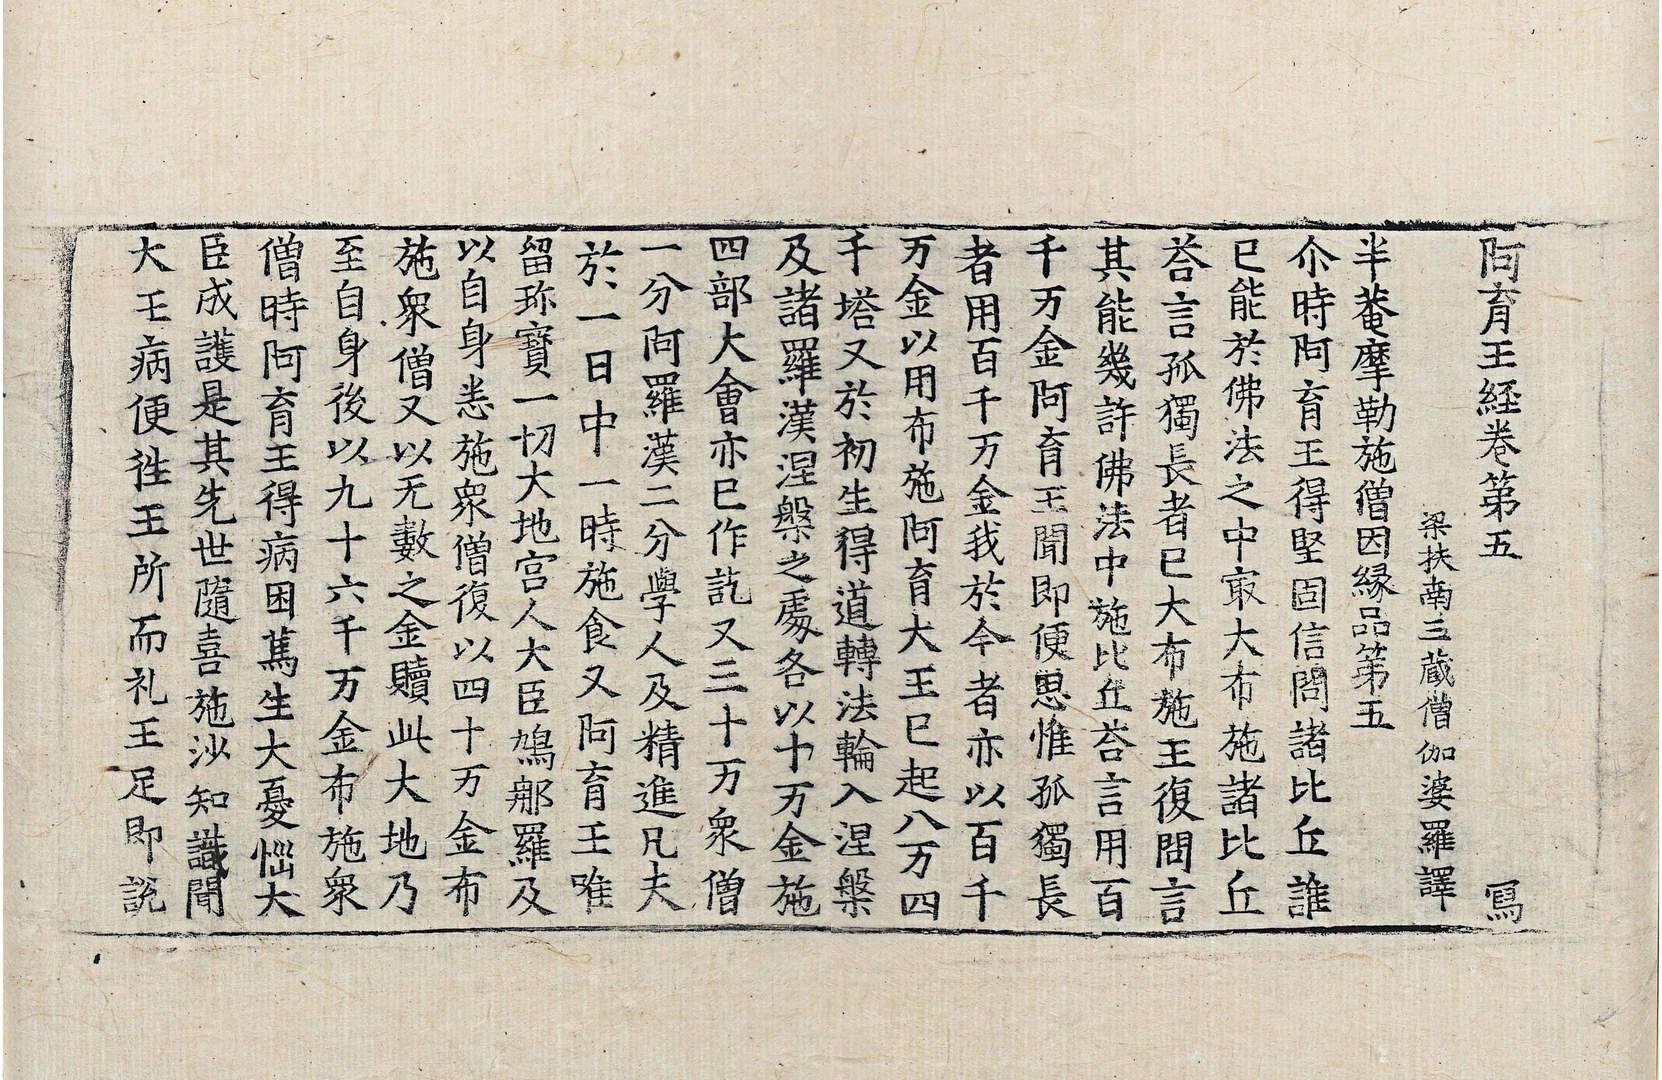 阿育王経卷第五　寫
梁扶南三蔵僧伽婆羅譯
半菴摩勒施僧因縁品第五
尒時阿育王得堅固信問諸比丘誰
已能於佛法之中㝡大布施諸比丘
荅言孤獨長者已大布施王復問言
其能幾許佛法中施比丘荅言用百
千万金阿育王聞即便思惟孤獨長
者用百千万金我於今者亦以百千
万金以用布施阿育大王已起八万四
千塔又於初生得道轉法輪入涅槃
及諸羅漢涅槃之處各以十万金施
四部大會亦已作訖又三十万衆僧
一分阿羅漢二分學人及精進凡夫
於一日中一時施食又阿育王唯
留珎寳一切大地宫人大臣鳩那羅及
以自身悉施衆僧復以四十万金布
施衆僧又以无數之金贖此大地乃
至自身後以九十六千万金布施衆
僧時阿育王得病困篤生大憂惱大
臣成護是其先世隨喜施沙知識聞
大王病便往王所而礼王足即說